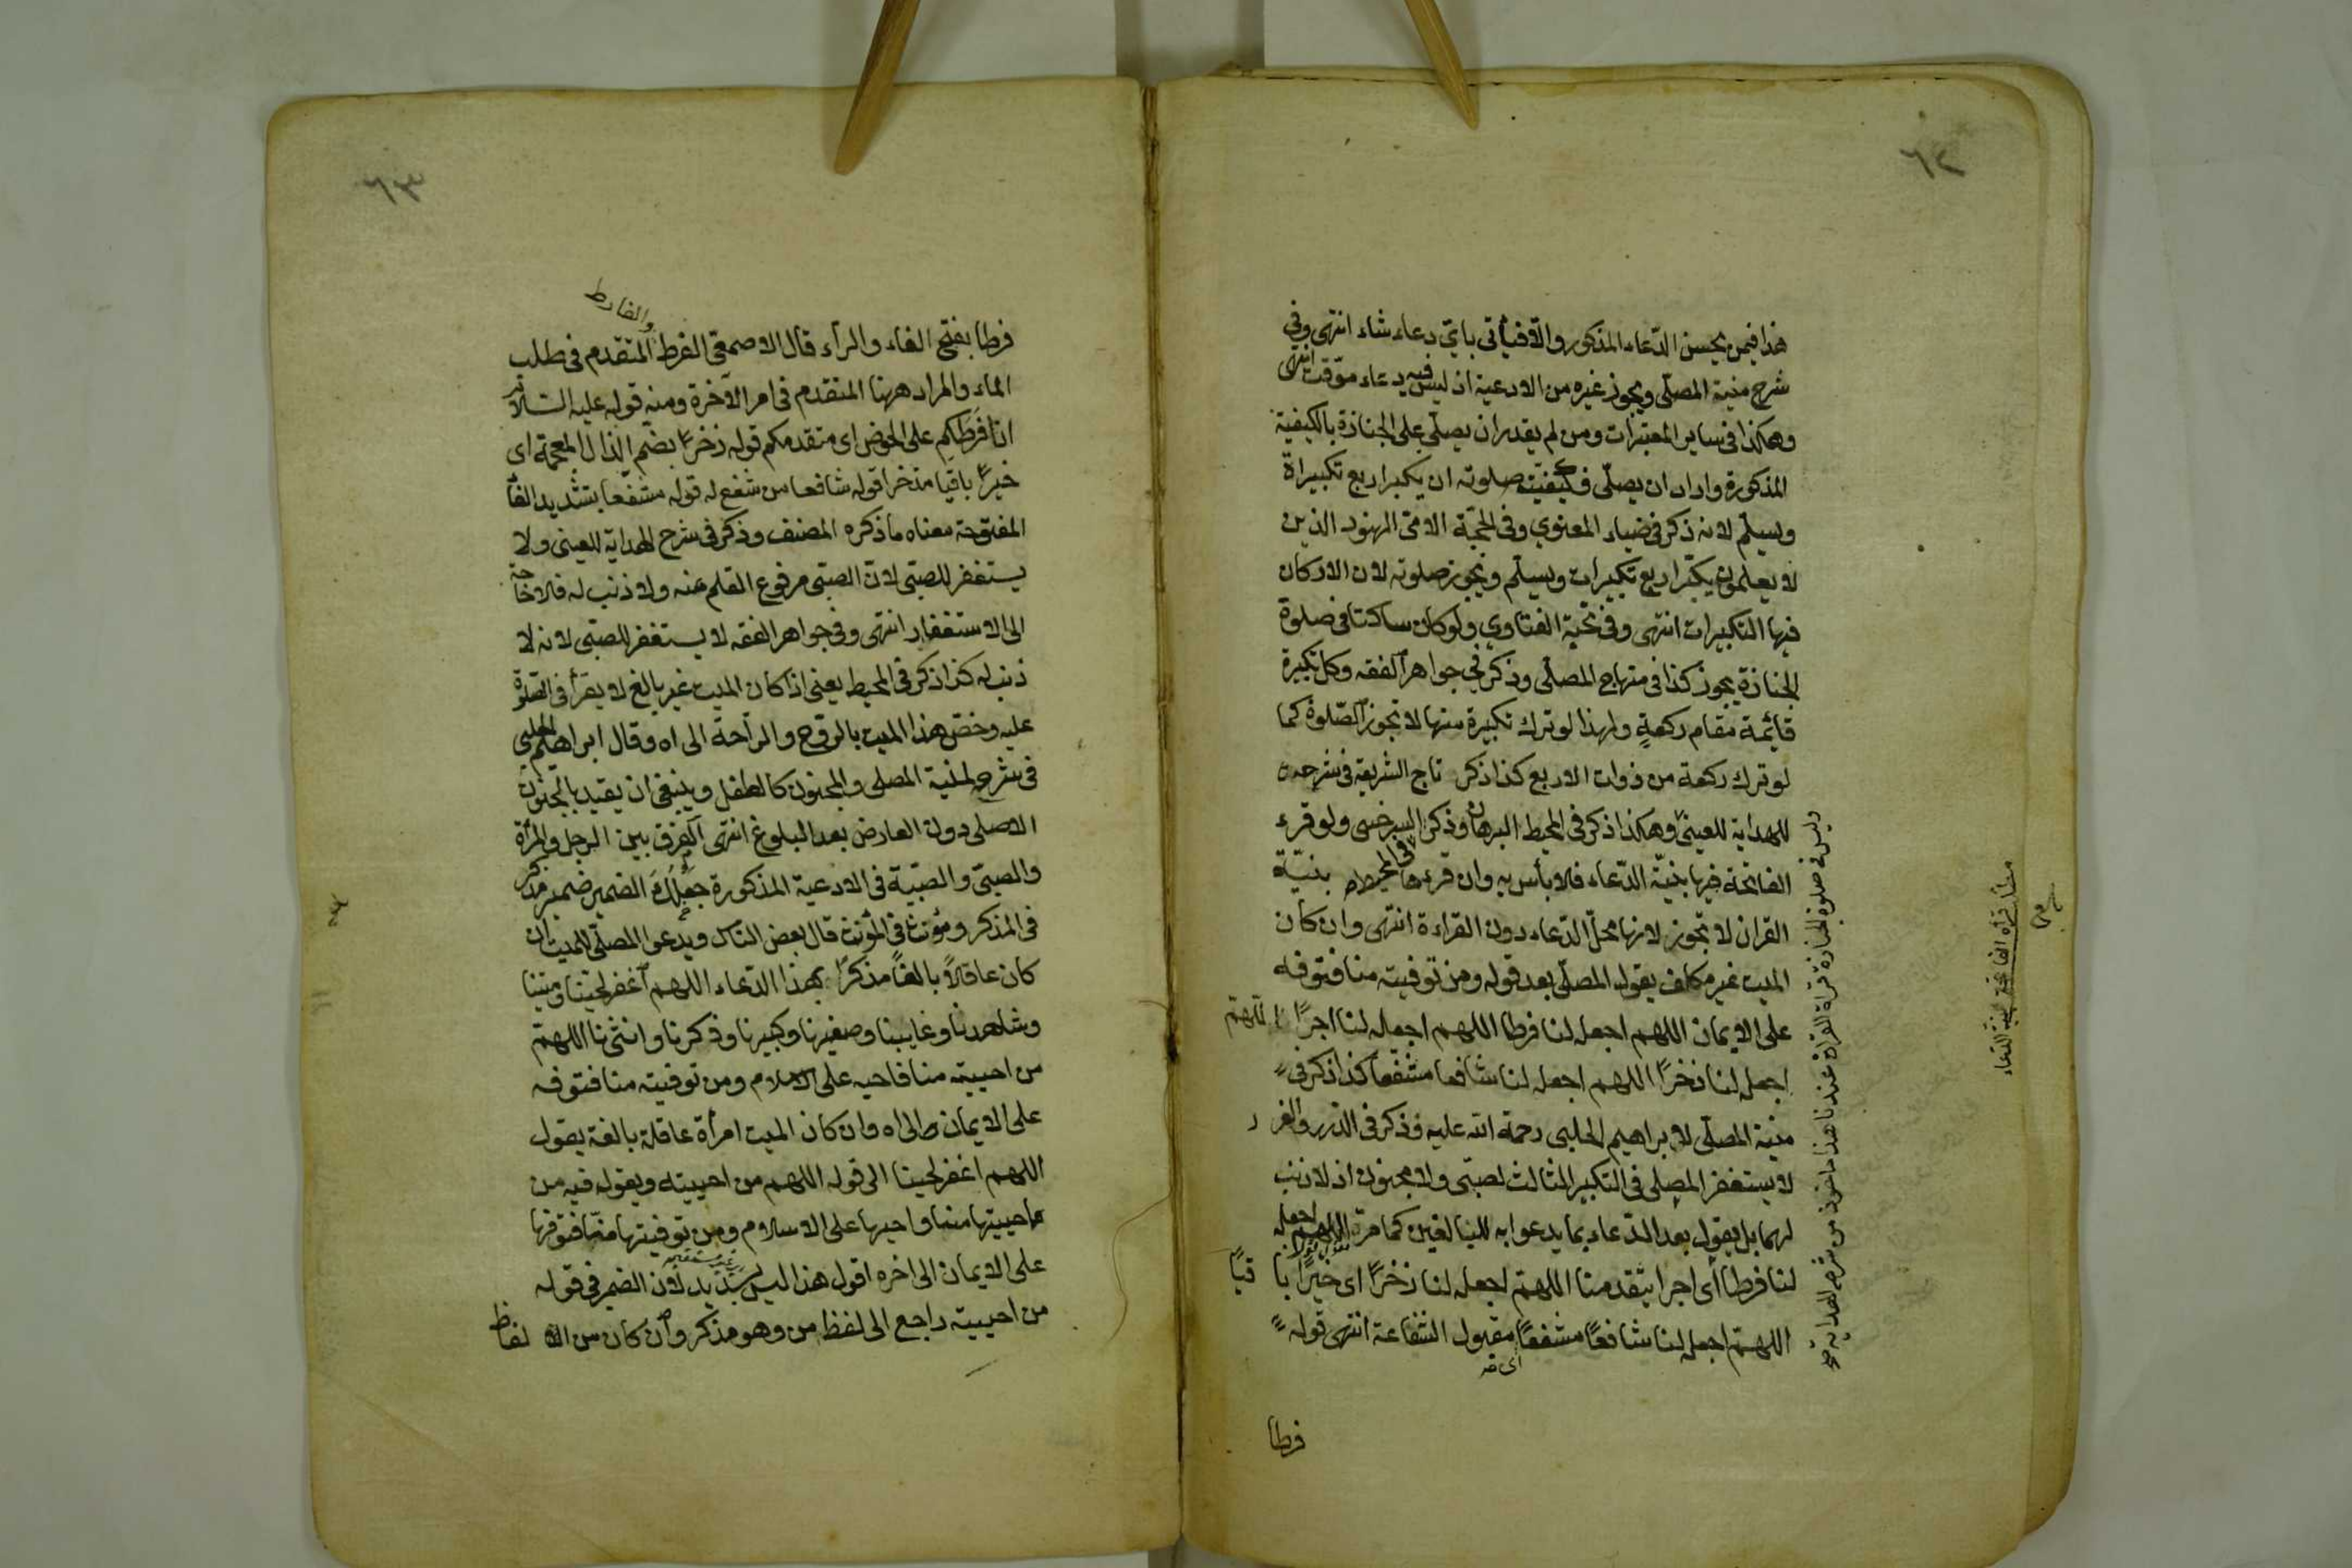 ٦٢
هذا فيمن يحسن الدّعاء المذكور والّا فيأتى باىّ دعاء شاء انتهى وفي
شرح منية المصلّى ويجوز غيره من الادعية اذ ليس فيه دعاء موّقت انتهى
وهكذا فى ساير المعتبرات ومن لم يقدر ان يصلّى على الجنازة بالكيفيّة
المذكورة واراد ان يصلّى فكيفيّت صلوته ان يكبر اربع تكبيراة
ويسلّم لانه ذكر فى ضياء المعنوي وفى الحجّة الامّى الهنود الذين
لا يعلمون يكبّر اربع تكبيرات ويسلّم وتجوز صلوته لان الاركان
فيها التكبيرات انتهى وفى نخبة الفتاوي ولو كان ساكتا فى صلوة
الجنازة يجوز كذا فى منهاج المصلّى وذكر في جواهر الفقه وكل تكبيرة
قائمة مقام ركعةٍ ولهذا لو ترك تكبيرة منها لا تجوز الصّلوة كما
لو ترك ركعة من ذوات الاربع كذا ذكر تاج الشريعة فى شرحه
للهداية للعينىّ وهكذا ذكر فى المحيط البرهان وذكر السرخسى ولو قرء
الفاتحة فيها بنيّة الدّعاء فلا بأس به وان قرءها بنيّة
فى المحيط
القران لا تجوز لانها محلّ الدّعاء دون القراءة انتهى وان كان
الميت غير مكلف يقول المصلّى بعد قوله ومن توفيته منا فتوفه
على الايمان اللهم اجعله لنا فرطا اللهم اجعله لنا اجرًا اللهمّ
اجعله لنا ذخرًا اللهم اجعله لنا شافعا مشفّعا كذا ذكر فى
منية المصلّى لابراهيم الحلبى رحمة الله عليه وذكر فى الدّرر والغرر
لا يستغفر المصلى فى التكبير الثالث لصبّى ولا مجنون اذ لا ذنب
لهما بل يقول بعد الدّعاء بما يدعوا به للبالغين كما مرّ اللهم اجعله
لنا فرطا أى اجرا يتقدمنا اللهمّ اجعله لنا ذخرًا اى خيرًا باقيًا
اللهمّ اجعله لنا شافعًا مشفعًا مقبول الشفاعة انتهى قوله
اى
فرطا
وليس فى صلوة الجنازة قراة القراة عندنا هذا ماخوذ من شرح الهداية
مطلب قراة الفاتحة بنية الدعاء
٦٣
والفارط
فرطا بفتح الفاء والرآء قال الاصمعّى الفرط المتقدم فى طلب
الماء والمراد ههنا المتقدم فى امر الآخرة ومنه قوله عليه السّلام
انا فَرَطكم على الحوض اى متقدمكم قوله ذخرًا بضم الذال المعجمة اى
خيرًا باقيا مذخرا قوله شافعا من شفع له قوله مشفّعا بتشديد الفآ
المفتوحة معناه ما ذكره المصنف وذكر فى شرح الهداية للعينى ولا
يستغفر للصبّى لانّ الصبّى مرفوع القلم عنه ولا ذنب له فلا حاجة
الى الاستغفار انتهى وفى جواهر الفقه لا يستغفر للصبّى لانه لا
ذنب له كذا ذكر فى المحيط يعنى اذا كان الميت غير بالغ لا يقرأ فى الصّلوة
عليه وخصّ هذا الميت بالرّوح والرّاحة الى اه وقال ابراهيم الحلبي
فى شرح لمنية المصلى والمجنون كالطفل وينبغى ان يقيد بالمجنون
الاصلى دون العارض بعد البلوغ انتهى الفرق بين الرجل والمرأة
والصبّى والصّبيّة فى الادعية المذكورة جعلك الضمير ضمير مذكر
فى المذكر ومؤنث فى المؤنث قال بعض النّاس ويدعوا المصلّى للميت ان
كان عاقلاً بالغاً مذكرًا بهذا الدّعاء اللهم اغفر لحيّنا وميّتنا
وشاهدنا وغايبنا وصغيرنا وكبيرنا وذكرنا وانثنا اللهمّ
من احييته منا فاحيه على الاسلام ومن توفيته منا فتوفه
على الايمان والى اه وان كان الميت امرأة عاقلة بالغة يقول
اللهم اغفر لحينا الى قوله اللهم من احييته ويقوله فيه من
احييتها منا واحيها على الاسلام ومن توفيتها منّا فتوفها
على الايمان الى اخره اقول هذا ليس بسديد لان الضمير فى قوله
من احييته راجع الى لفظ من وهو مذكر وان كان من الالفاظ